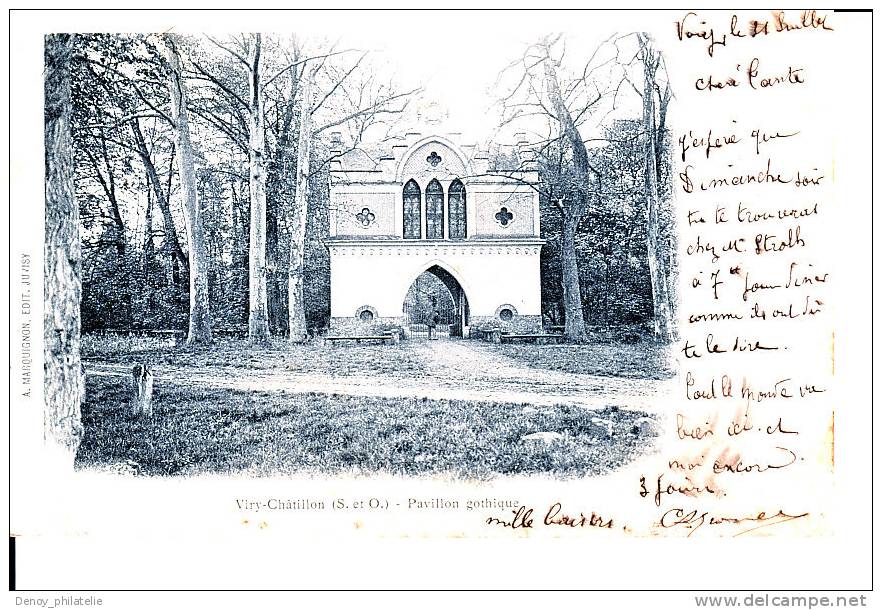 Viry, le 21 Juillet
chère Tante
j'espère que
Dimanche soir
tu te trouveras
chez M. Stroth
à 7h pour diner
comme ils ont dû
te le dire.
Tout le monde va
bien ici et
moi encore
3 jours.
mille baisers.
A. MARQUIGNON, EDIT. JUVISY
Viry-Châtillon (S. et O.) - Pavillon gothique
Denoy_philatelie
www.delcampe.net